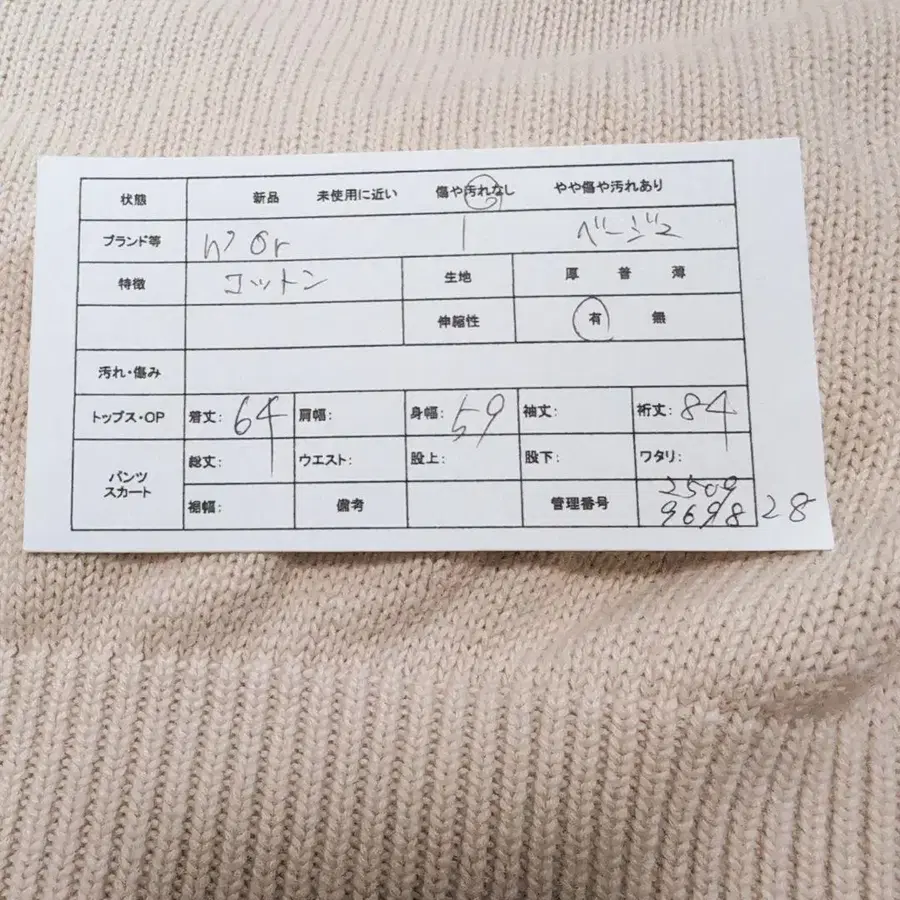 状態 新品 未使用に近い 傷や汚れなし やや傷や汚れあり
ブランド等 n'Or 1 ベージュ
特徴 コットン 生地 厚 普 薄
伸縮性 有 無
汚れ・傷み
トップス・OP 着丈: 64 肩幅: 身幅: 59 袖丈: 裄丈: 84
パンツ スカート 総丈: ウエスト: 股上: 股下: ワタリ:
裾幅: 備考 管理番号 2509 9698 28